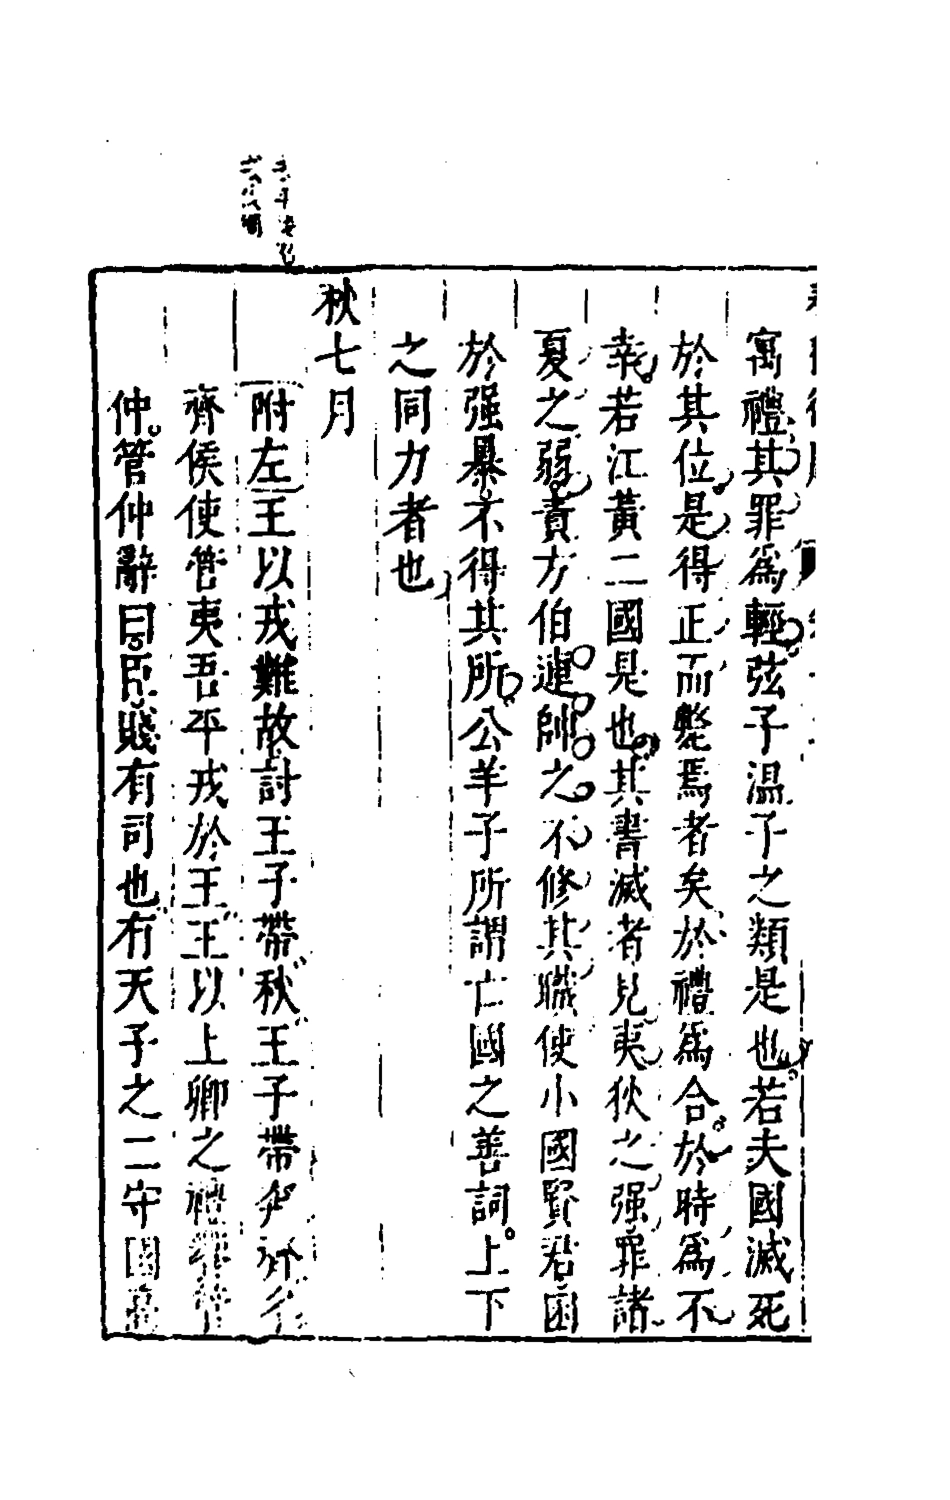 寓禮其罪爲輕弦子温子之類是也若夫國滅死
於其位是得正而斃焉者矣於禮爲合於時爲不
幸若江黃二國是也其書滅者見夷狄之强罪諸
夏之弱責方伯連帥之不修其職使小國賢君困
於强暴不得其所公羊子所謂亡國之善詞上下
之同力者也
秋七月
附左王以戎難故討王子帶秋王子帶奔齊
齊侯使管夷吾平戎於王王以上卿之禮饗管
仲管仲辭曰臣賤有司也有天子之二守國高